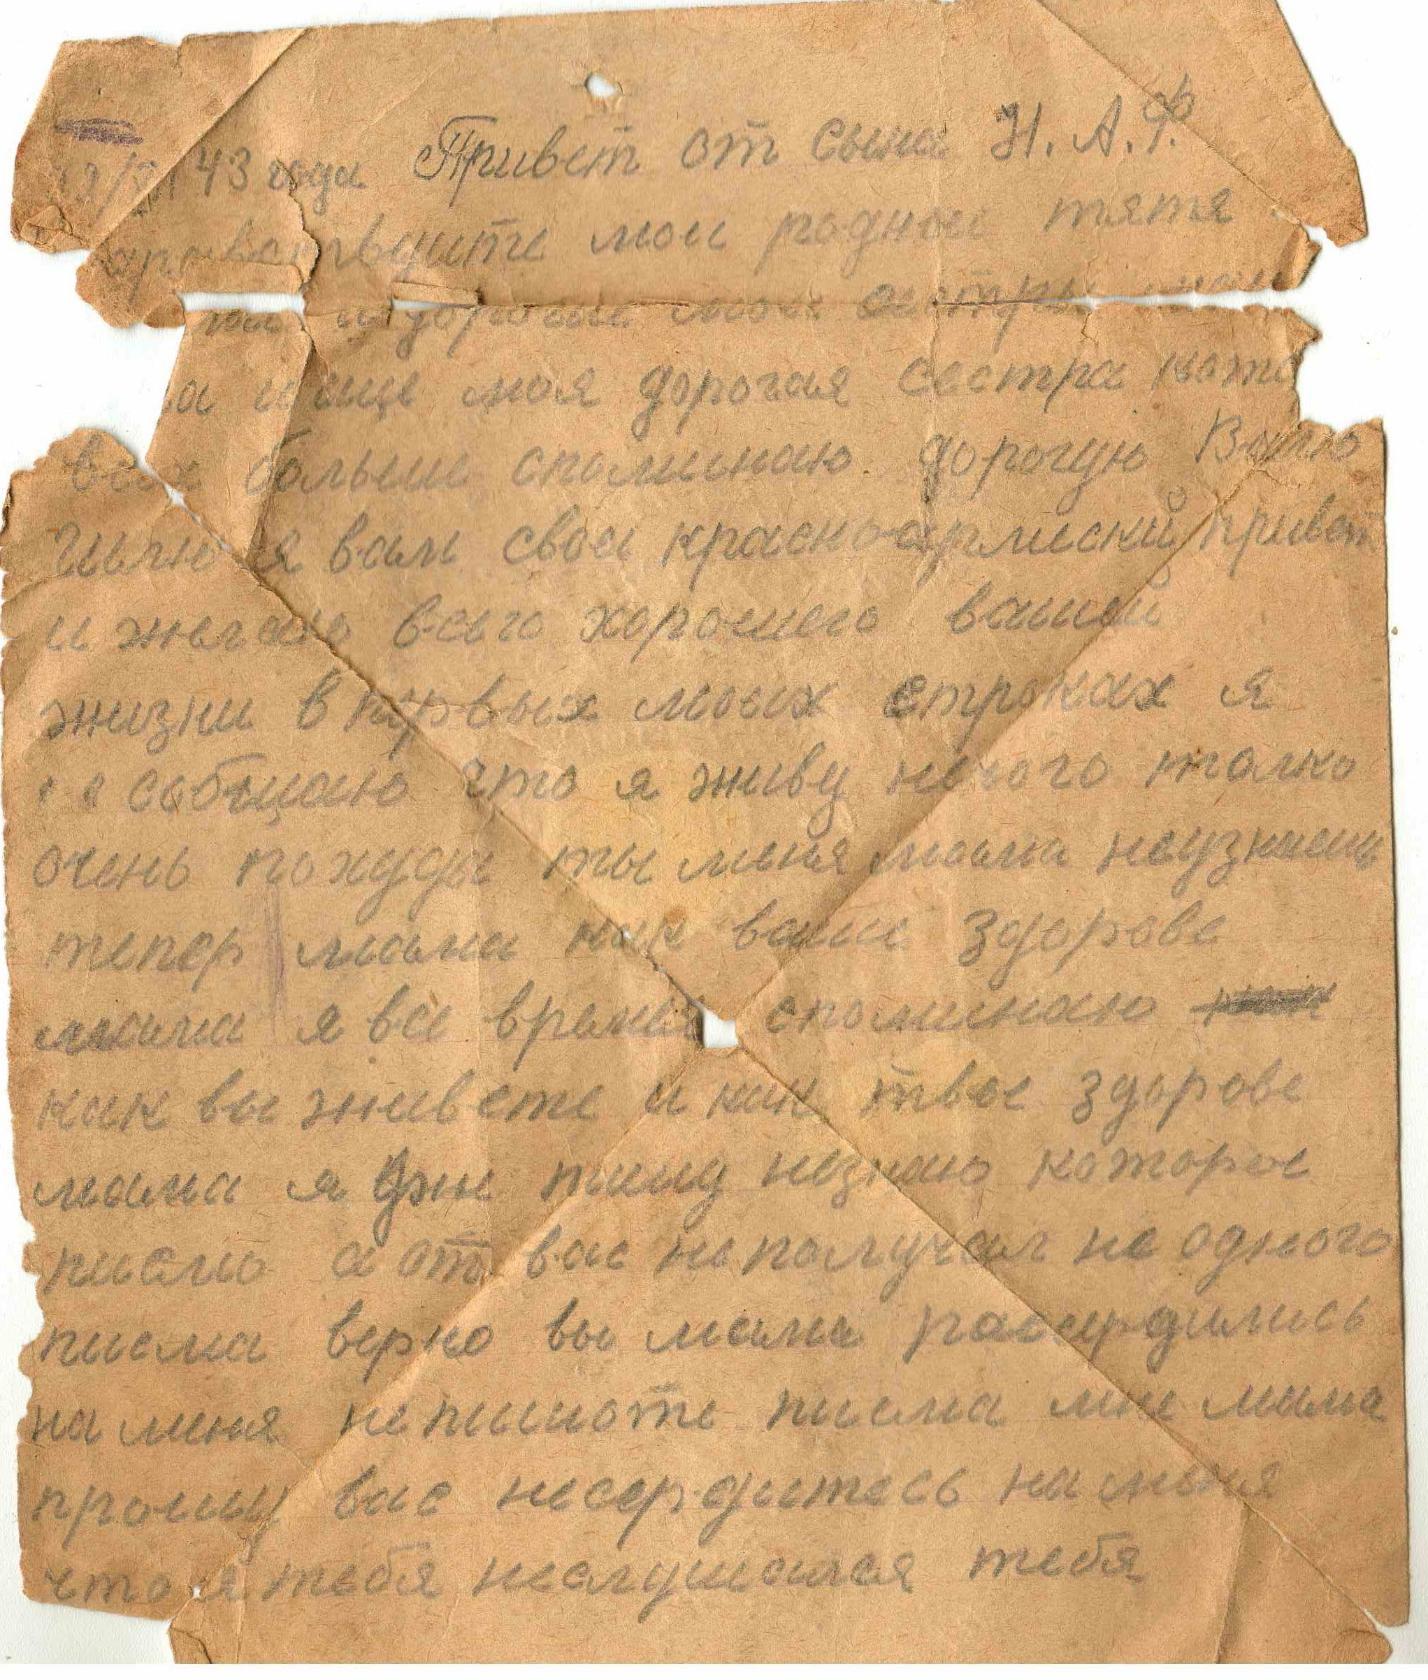 43 года Привет от сына Н. А. Ф.
мои родные тятя
и дорогие мои сестры
и еще моя дорогая сестра
всех больше споминаю дорогую
я вам свои красноармиский привет
и желаю всего хорошего вашей
жизни в первых моих строках я
собщаю что я живу нечого толко
очень похуды ты меня мама неузнаеш
тепер мама как ваше здорове
мама я все время споминаю
как вы живете и как твое здорове
мама я уже пишу незнаю которое
писмо а от вас неполучал не одного
писма верно вы мама рассердились
на меня непишоте писма мне мама
прошу вас несердитесь на меня
что я тебя неслушался тебя